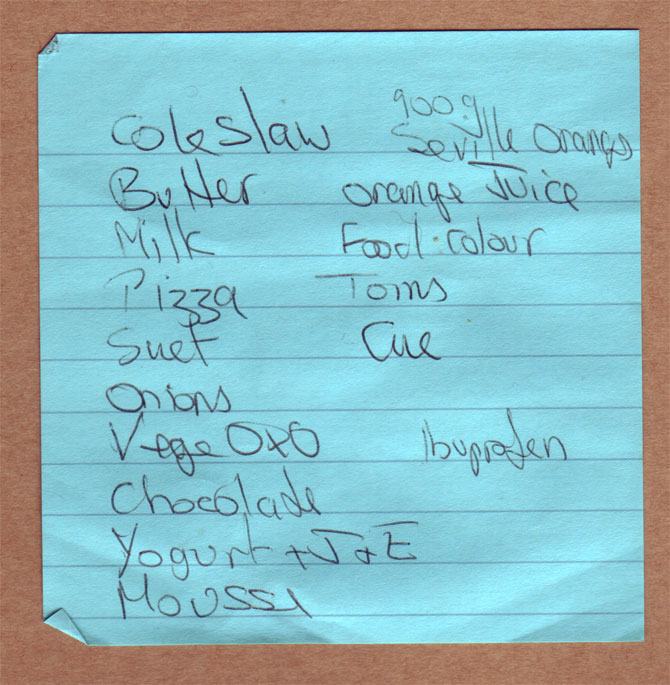 Coleslaw
Butter
Milk
Pizza
Suet
Onions
Vege OXO
Chocolate
Yogurt + J + E
Mousse
900g
Seville Oranges
Orange Juice
Food colour
Toms
Cue
Ibuprofen